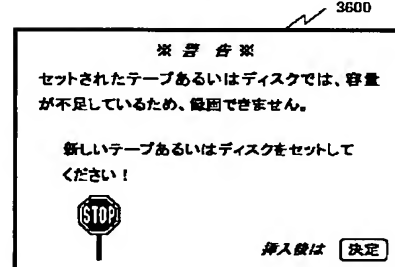 3600
※ 警 告 ※
セットされたテープあるいはディスクでは、容量
が不足しているため、録画できません。
新しいテープあるいはディスクをセットして
ください！
STOP
挿入後は 決定